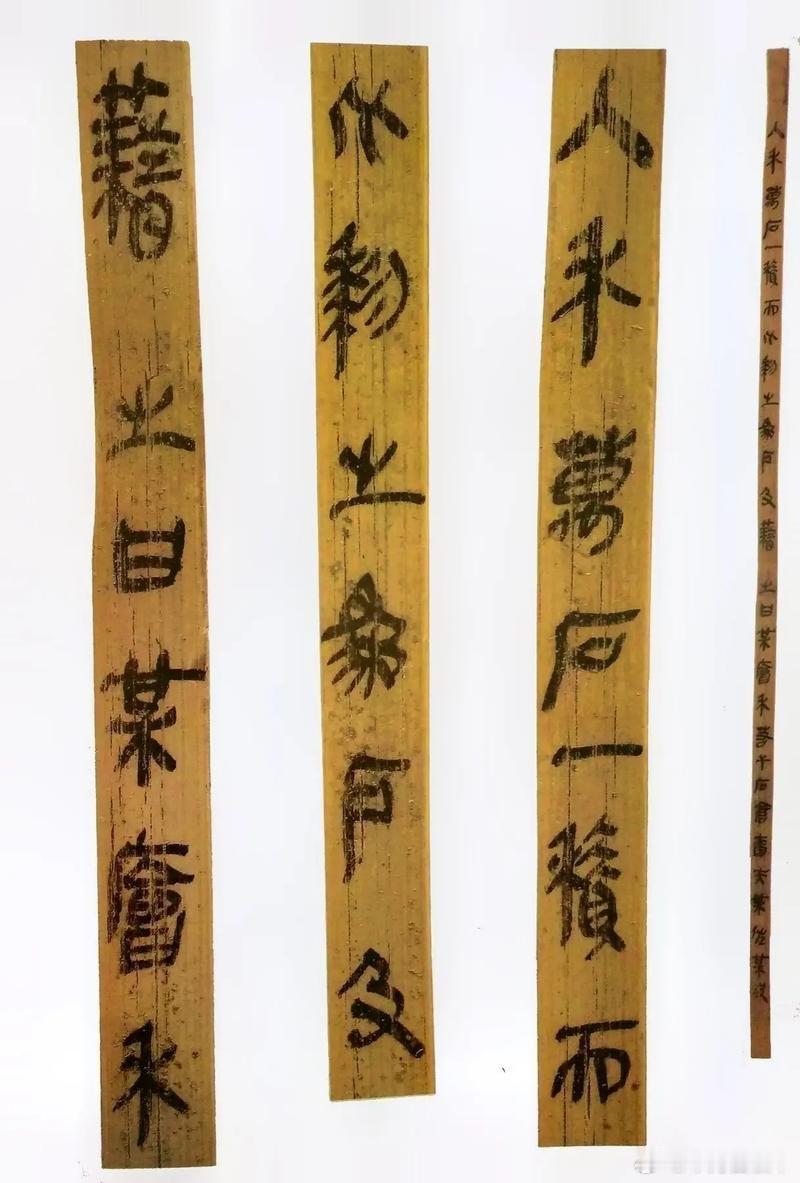 入禾萬石一積而比黎之為戶及籍之曰某廥禾若干石倉嗇夫某佐某史
入禾萬石一積而
比黎之為戶及
籍之曰某廥禾